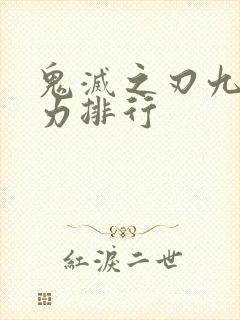 鬼滅之刃九
力排行
紅淚二世